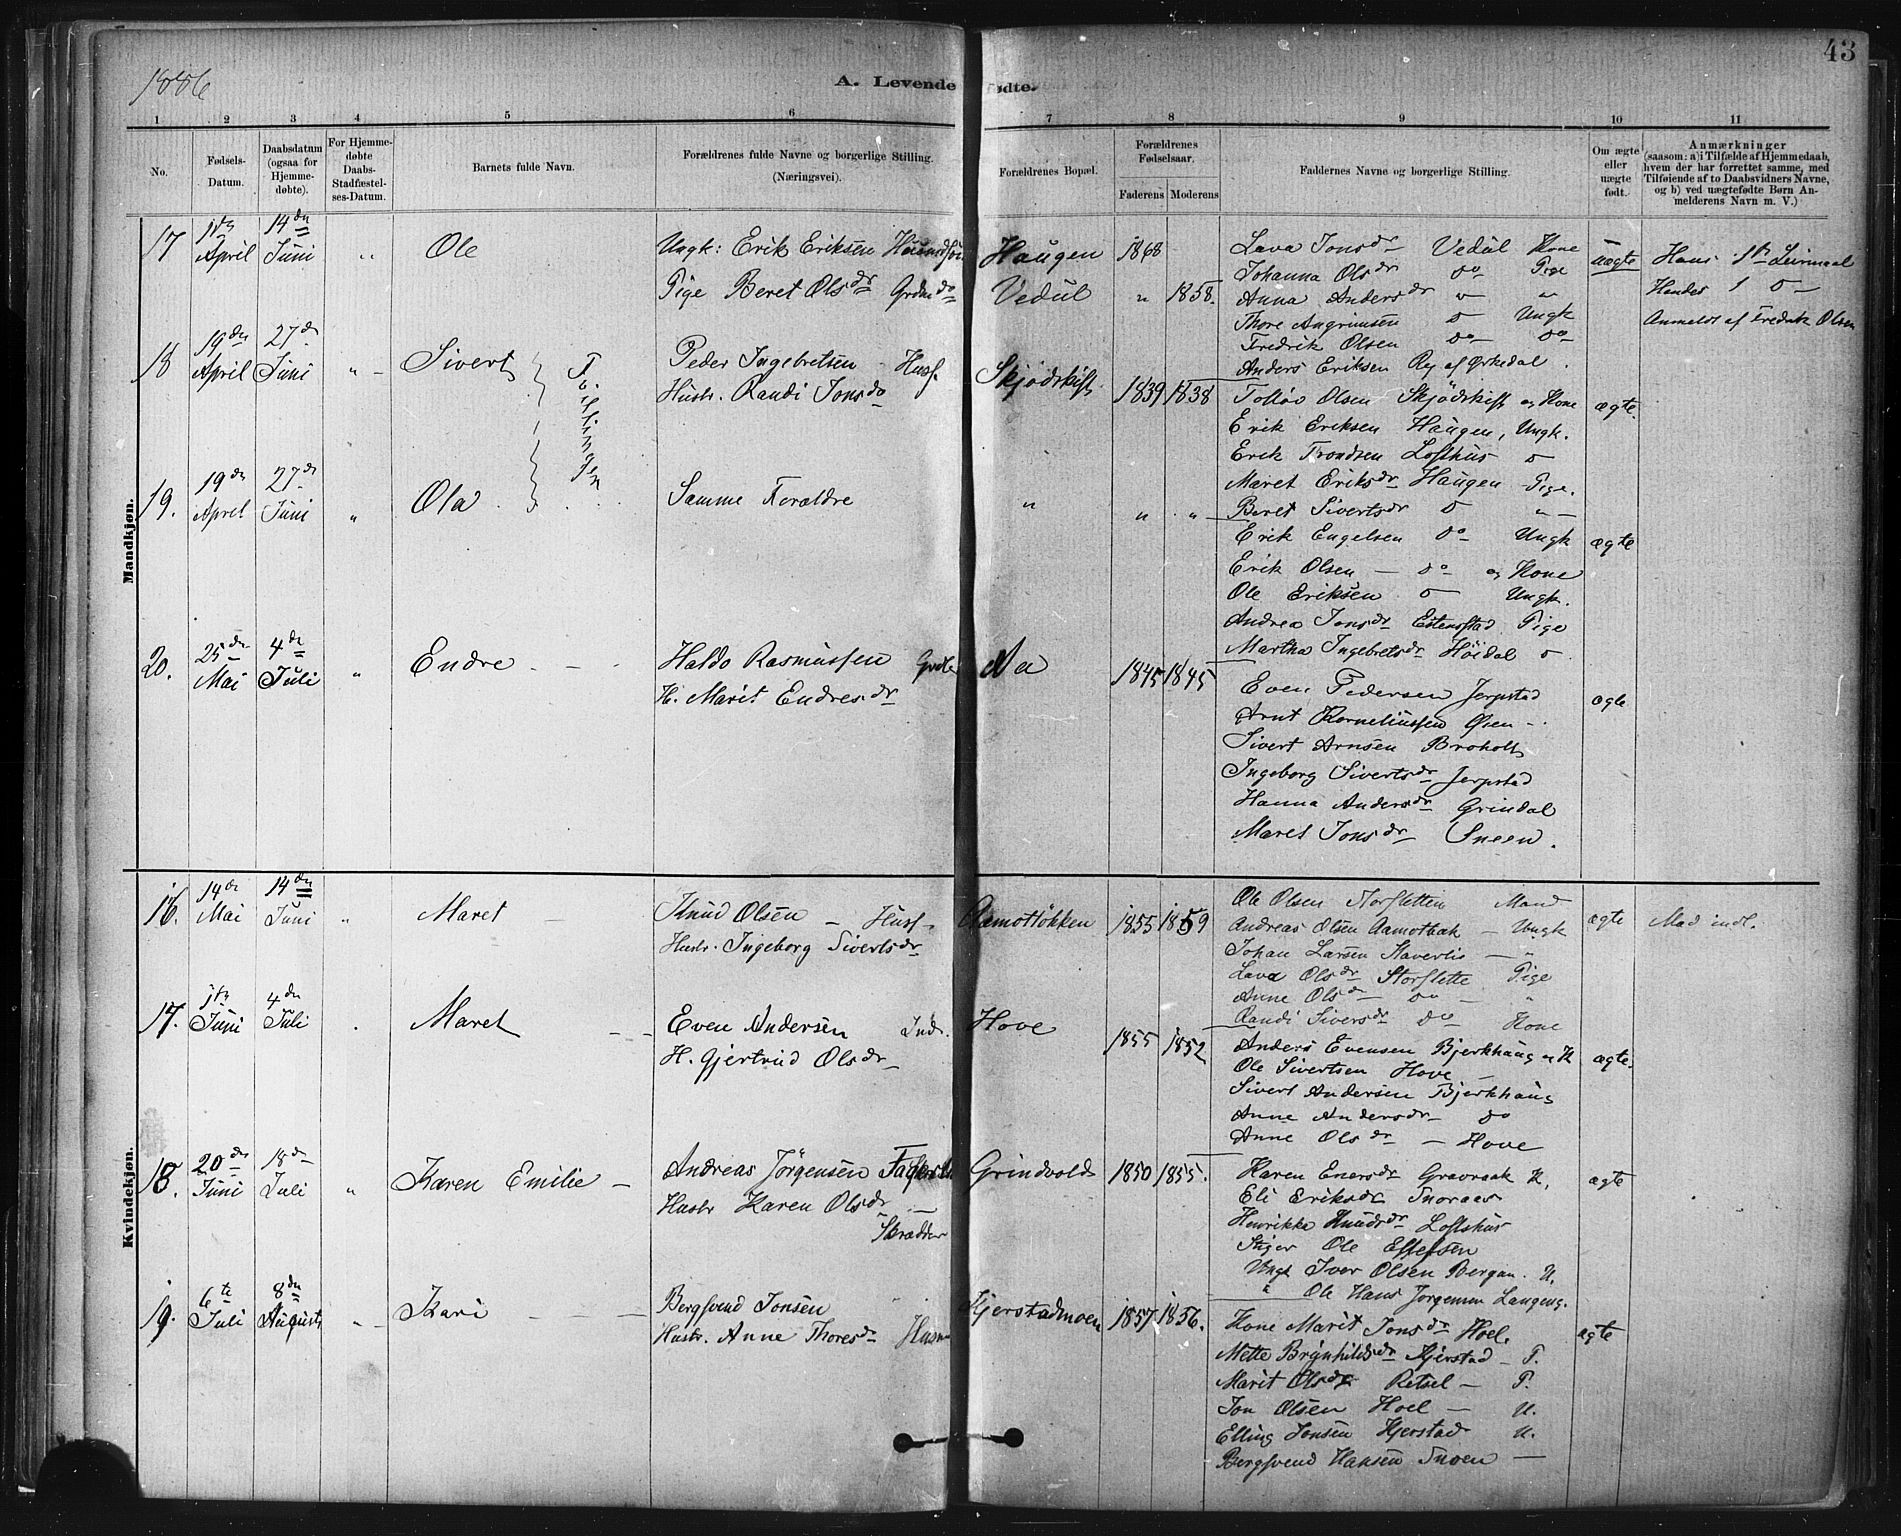 1886
A. Levende fødte.
43
1 2 3 4 5 6 7 8 9 10 11
No.
Fødsels-Datum.
Daabsdatum (ogsaa for Hjemmedøbte).
For Hjemmedøbte Daabs-Stadfæstelses-Datum.
Barnets fulde Navn.
Forældrenes fulde Navne og borgerlige Stilling. (Næringsvei).
Forældrenes Bopæl.
Forældrenes Fødselsaar.
Faderens Moderens
Faddernes Navne og borgerlige Stilling.
Om ægte eller uægte født.
Anmærkninger
(saasom: a) i Tilfælde af Hjemmedaab, hvem der har forrettet samme, med Tilføiende af to Daabsvidners Navne, og b) ved uægtefødte Børn Anmelderens Navn m. V.)
Mandkjøn.
17 1ste April 14de Juni " Ole
Ungk: Erik Eriksen
Pige Beret Olsdr
Haugen 1868
Vedul " 1858.
Lava Jonsdr Vedul Kone
Johanna Olsdr do Pige
Anna Andersdr " "
Thore Angrimsen do Ungk
Fredrik Olsen do do
Anders Eriksen Rej af Ørkedal.
uægte
Hans 1ste Leiermaal
Hendes 1 do
Anmeldt af Fredrik Olsen
18 19de April 27de Juni " Sivert Tvillinger
Peder Ingebretsen Husf.
Hustr. Randi Jonsdr
Skjødskift 1839 1838
Tollöv Olsen Skjødskift og Kone
Erik Eriksen Haugen, Ungk.
Erik Trondsen Lofthus do
Maret Eriksdr Haugen Pige.
Beret Sivertsdr do "
ægte.
19. 19de April 27de Juni " Ola
Samme Forældre
" " "
Erik Engelsen do Ungk
Erik Olsen do og Kone
Ole Eriksen do Ungk.
Andrea Jonsdr Estensstad Pige
Martha Ingebretsdr Höidal do
ægte
20. 25de Mai 4de Juli " Endre
Haldo Rasmussen
H. Marit Endresdr
Aa 1845 1845
Even Pedersen Jerpstad
Arnt Korneliussen Øien
Sivert Arnsen Broholt
Ingeborg Sivertsdr Jerpstad
Hanna Andersdr Grindal
Maret Jonsdr Sneen.
ægte
Kvindekjøn.
16. 14de Mai 14de Juni " Maret
Knud Olsen Husf.
Hustr. Ingeborg Sivertsdr
Aamotløkken 1855 1859
Ole Olsen Storsletten Mand
Andreas Olsen Aamotbak Ungk
Johan Larsen Haverlis "
Lava Olsdr Storslette Pige
Anne Olsdr do "
Randi Siversdr do Kone
ægte
Mad indl.
17. 1ste Juni 4de Juli Maret
Even Andersen Ind.
H. Gjertrud Olsdr
Hove 1855 1852
Anders Evensen Bjerkhaug og K
Ole Sivertsen Hove
Sivert Andersen Bjerkhaug
Anne Andersdr do
Anne Olsdr Hove
ægte.
18. 20de Juni 18de Juli " Karen Emilie
Andreas Jörgensen
Hustr Karen Olsdr
Skrædder
Grindvold 1850 1855.
Karen Enersdr Gravraak K.
Eli Eriksdr Snoraas
Henrikke Knudsdr Lofshus
Stiger Ole Effefsen
Ungk Iver Olsen Bergan. U.
" Ole Hans Jorgensen Langeng.
ægte
19. 6te Juli 8de August " Kari
Bergsvend Jonsen
Hustr. Anne Thoresdr Husm
Kjerstadmoen 1857 1856.
Kone Marit Jonsdr Hoel.
Mette Brynhildsdr Kjerstad P.
Marit Olsdr Retsel P.
Jon Olsen Hoel U.
Elling Jonsen Kjerstad U.
Bergsvend Hansen Snoen
ægte